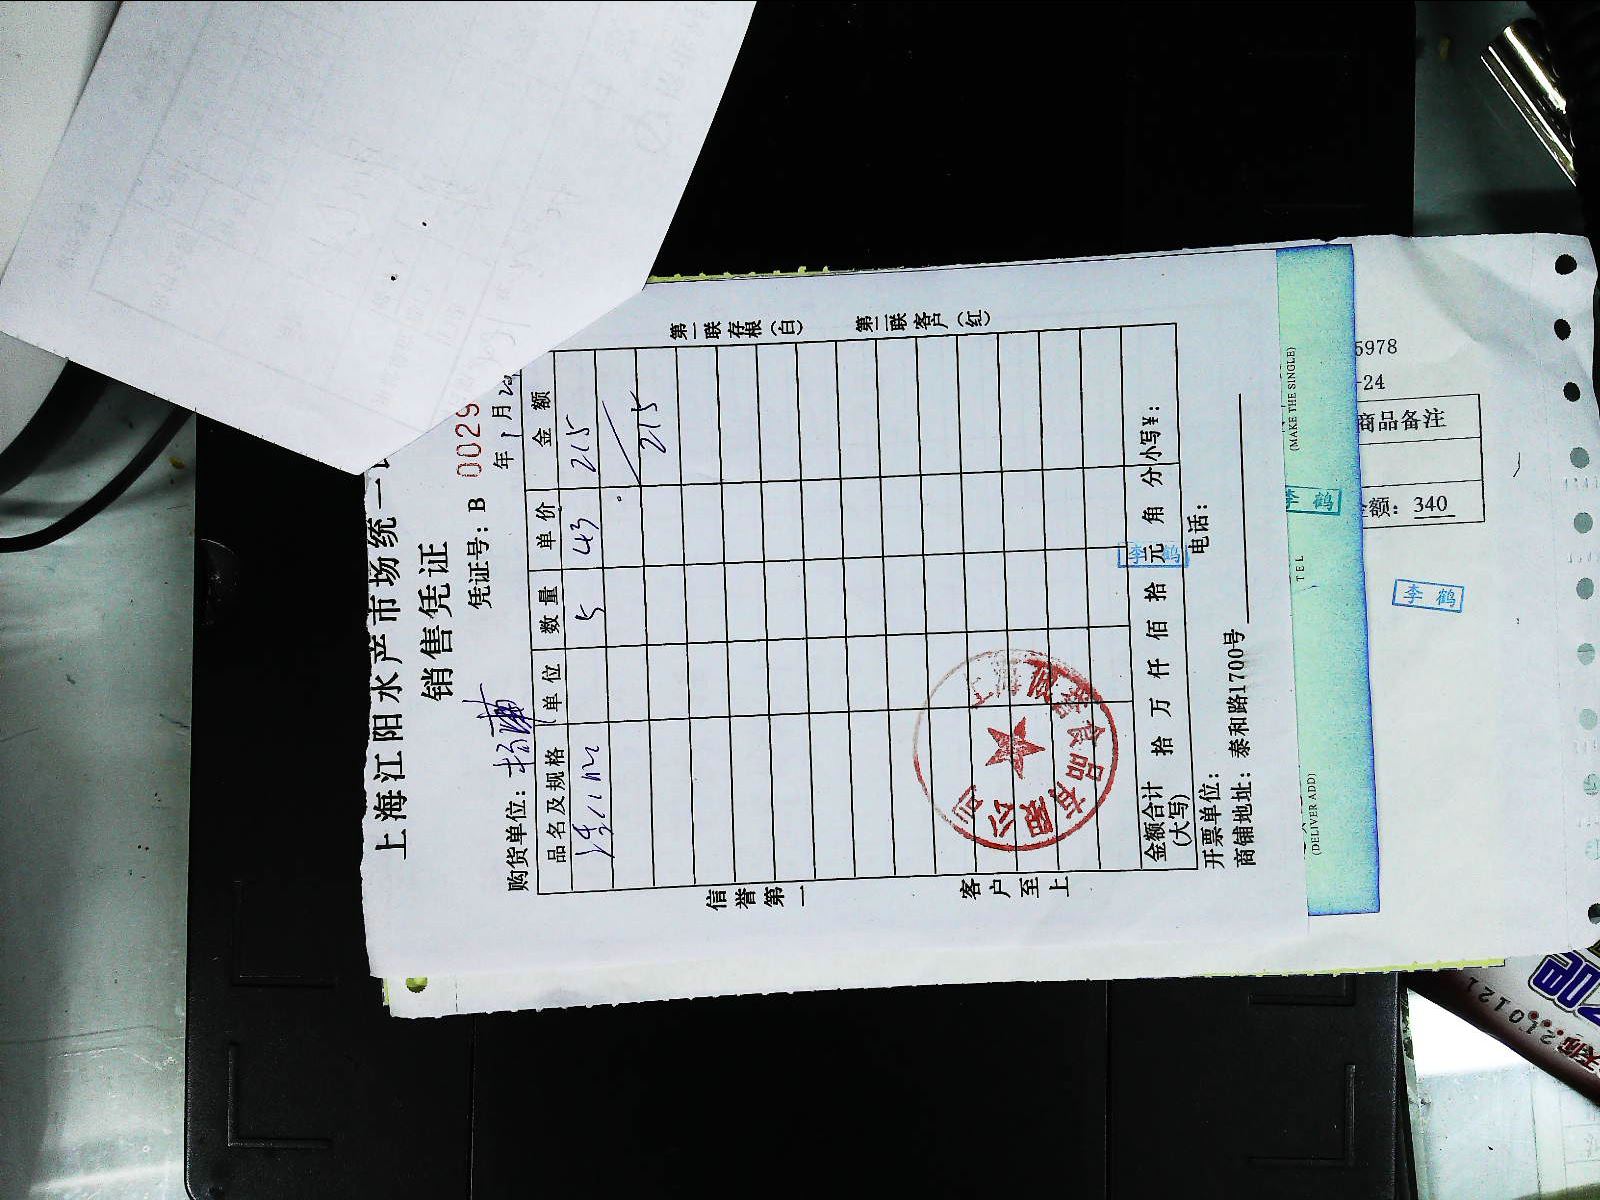 上海江阳水产市场统一
销售凭证
凭证号：B 0029
年 1 月
购货单位：
品名及规格 单位 数量 单价 金额
5 43 215
215
金额合计 拾 万 仟 佰 拾 元 角 分 小写¥：
(大写)
开票单位： 电话：
商铺地址：泰和路1700号
第一联存根（白）
第二联客户（红）
信誉第一
客户至上
食品有限公司
李鹤
(MAKE THE SINGLE)
李鹤
TEL
(DELIVER ADD)
5978
-24
商品备注
额：340
李鹤
210121